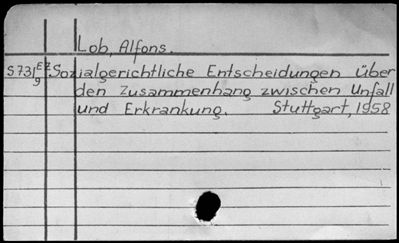 Lob, Alfons.
S 731 EZ 9 Sozialgerichtliche Entscheidungen über
den Zusammenhang zwischen Unfall
und Erkrankung. Stuttgart, 1958